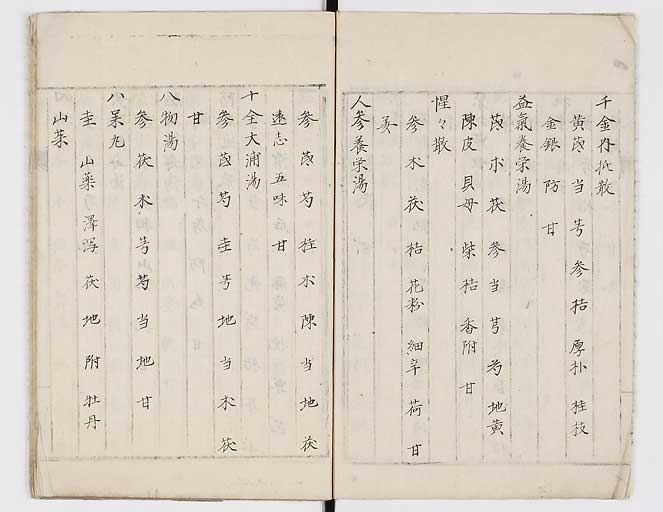 千金内托散
黄芪 当 芎 参 桔 厚朴 桂枝
金銀 防 甘
益氣養栄湯
芪 朮 茯 参 当 芎 芍 地黄
陳皮 貝母 柴 桔 香附 甘
惺々散
参 朮 茯 桔 花粉 細辛 荷 甘
姜
人参養栄湯
参 芪 芍 桂 朮 陳 当 地 茯
遠志 五味 甘
十全大浦湯
参 芪 芍 圭 芎 地 当 朮 茯
甘
八物湯
参 茯 朮 芎 芍 当 地 甘
八呆丸
圭 山薬 澤瀉 茯 地 附 牡丹
山茱